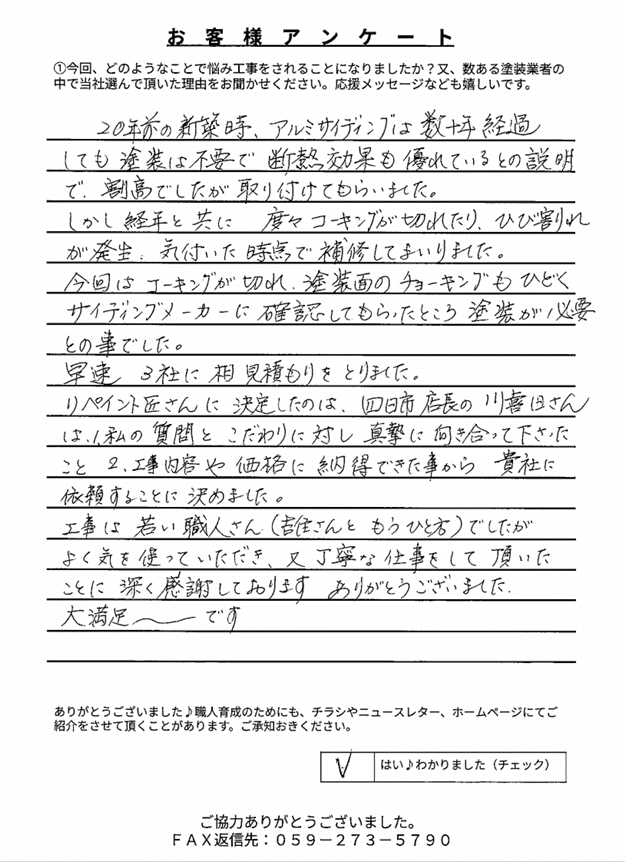 お客様アンケート
①今回、どのようなことで悩み工事をされることになりましたか？又、数ある塗装業者の
中で当社選んで頂いた理由をお聞かせください。応援メッセージなども嬉しいです。
20年前の新築時、アルミサイディングは数十年経過
しても塗装は不要で断熱効果も優れているとの説明
で、割高でしたが取り付けてもらいました。
しかし経年と共に 度々コーキングが切れたり、ひび割れ
が発生、気付いた時点で補修してまいりました。
今回はコーキングが切れ、塗装面のチョーキングもひどく
サイディングメーカーに確認してもらったところ塗装が必要
との事でした。
早速 3社に相見積もりをとりました。
リペイント匠さんに決定したのは、四日市店長の川喜田さん
は、1,私の質問とこだわりに対し真摯に向き合って下さった
こと 2,工事内容や価格に納得できた事から 貴社に
依頼することに決めました。
工事は若い職人さん(吉住さんともうひと方)でしたが
よく気を使っていただき、又丁寧な仕事をして頂いた
ことに深く感謝しております ありがとうございました.
大満足〜です
ありがとうございました♪職人育成のためにも、チラシやニュースレター、ホームページにてご
紹介をさせて頂くことがあります。ご承知おきください。
✓ はい♪わかりました（チェック）
ご協力ありがとうございました。
ＦＡＸ返信先：０５９－２７３－５７９０